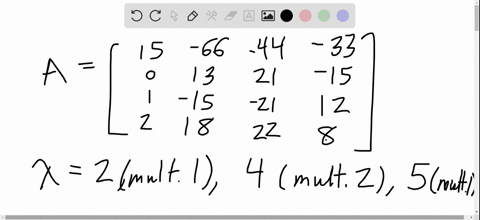 A = [ 15 -66 -44 -33
0 13 21 -15
1 -15 -21 12
2 18 22 8 ]
λ = 2 (mult. 1), 4 (mult. 2), 5 (mult. 1)